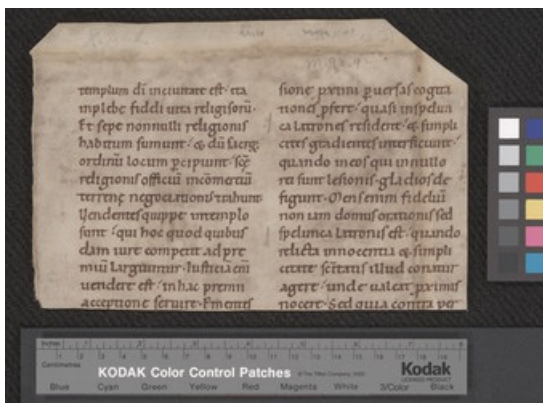 templum dī inciuitate est · ita
inplebe fideli uita religiosorū·
Et sepe nonnulli religionis
habitum sumunt · & dū sacrꝝ
ordinū locum pcipiunt · scē
religionis officiū incōmerciū
terrenę negociationis trahunt·
Uendentes quippe intemplo
sunt · qui hoc quod quibus
dam iure competit ad pre
miū largiuntur · Iusticiā eni
uendere est · hac premii
acceptione seruire · Ementes
sione pximi puersas cogita
tiones pfert · quasi inspelun
ca latrones resident · & simpli
citer gradientes interficiunt·
quando ineos qui innullo
rei sunt lesionis · gladios de
figunt · Mens enim fideliū
non iam domus orationis sed
spelunca latronis est · quando
relicta innocentia & simpli
citate scītatis illud conatur
agere · unde ualeat pximis
nocere · Sed quia contra per
Inches
Centimetres
KODAK Color Control Patches
Kodak
LICENSED PRODUCT
Blue Cyan Green Yellow Red Magenta White 3/Color Black